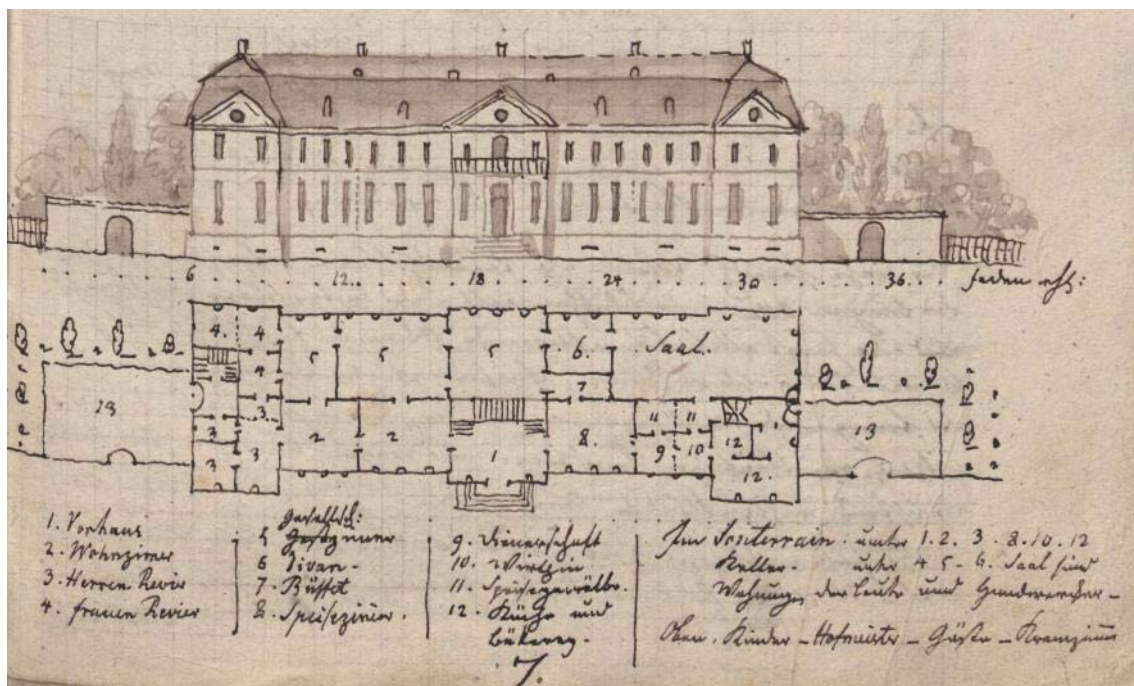 6 12 18 24 30 36 Faden rhl:
4. 4 5 5 5 6. Saal.
4
7
13 3 13
3 2 2 1 8. 11 11 12
3 3 9 10 12.
1. Vorhaus
2. Wohnzimer
3. Herren Revir
4. Frauen Revier
Gesellsch:
5
6 Divan-
7. Büffet
8. Speisezimer.
9. Dienerschaft
10. Wirthin
11. Speisegewölbe.
12. Küche und
Bäkerey.
Im Souterrain. unter 1. 2. 3. 8. 10. 12
Keller. unter 4 5. 6. Saal sind
Wohnungen der Leute und Handwerker-
Oben. Kinder - Hofmeister - Gäste - Kranzimer
7.